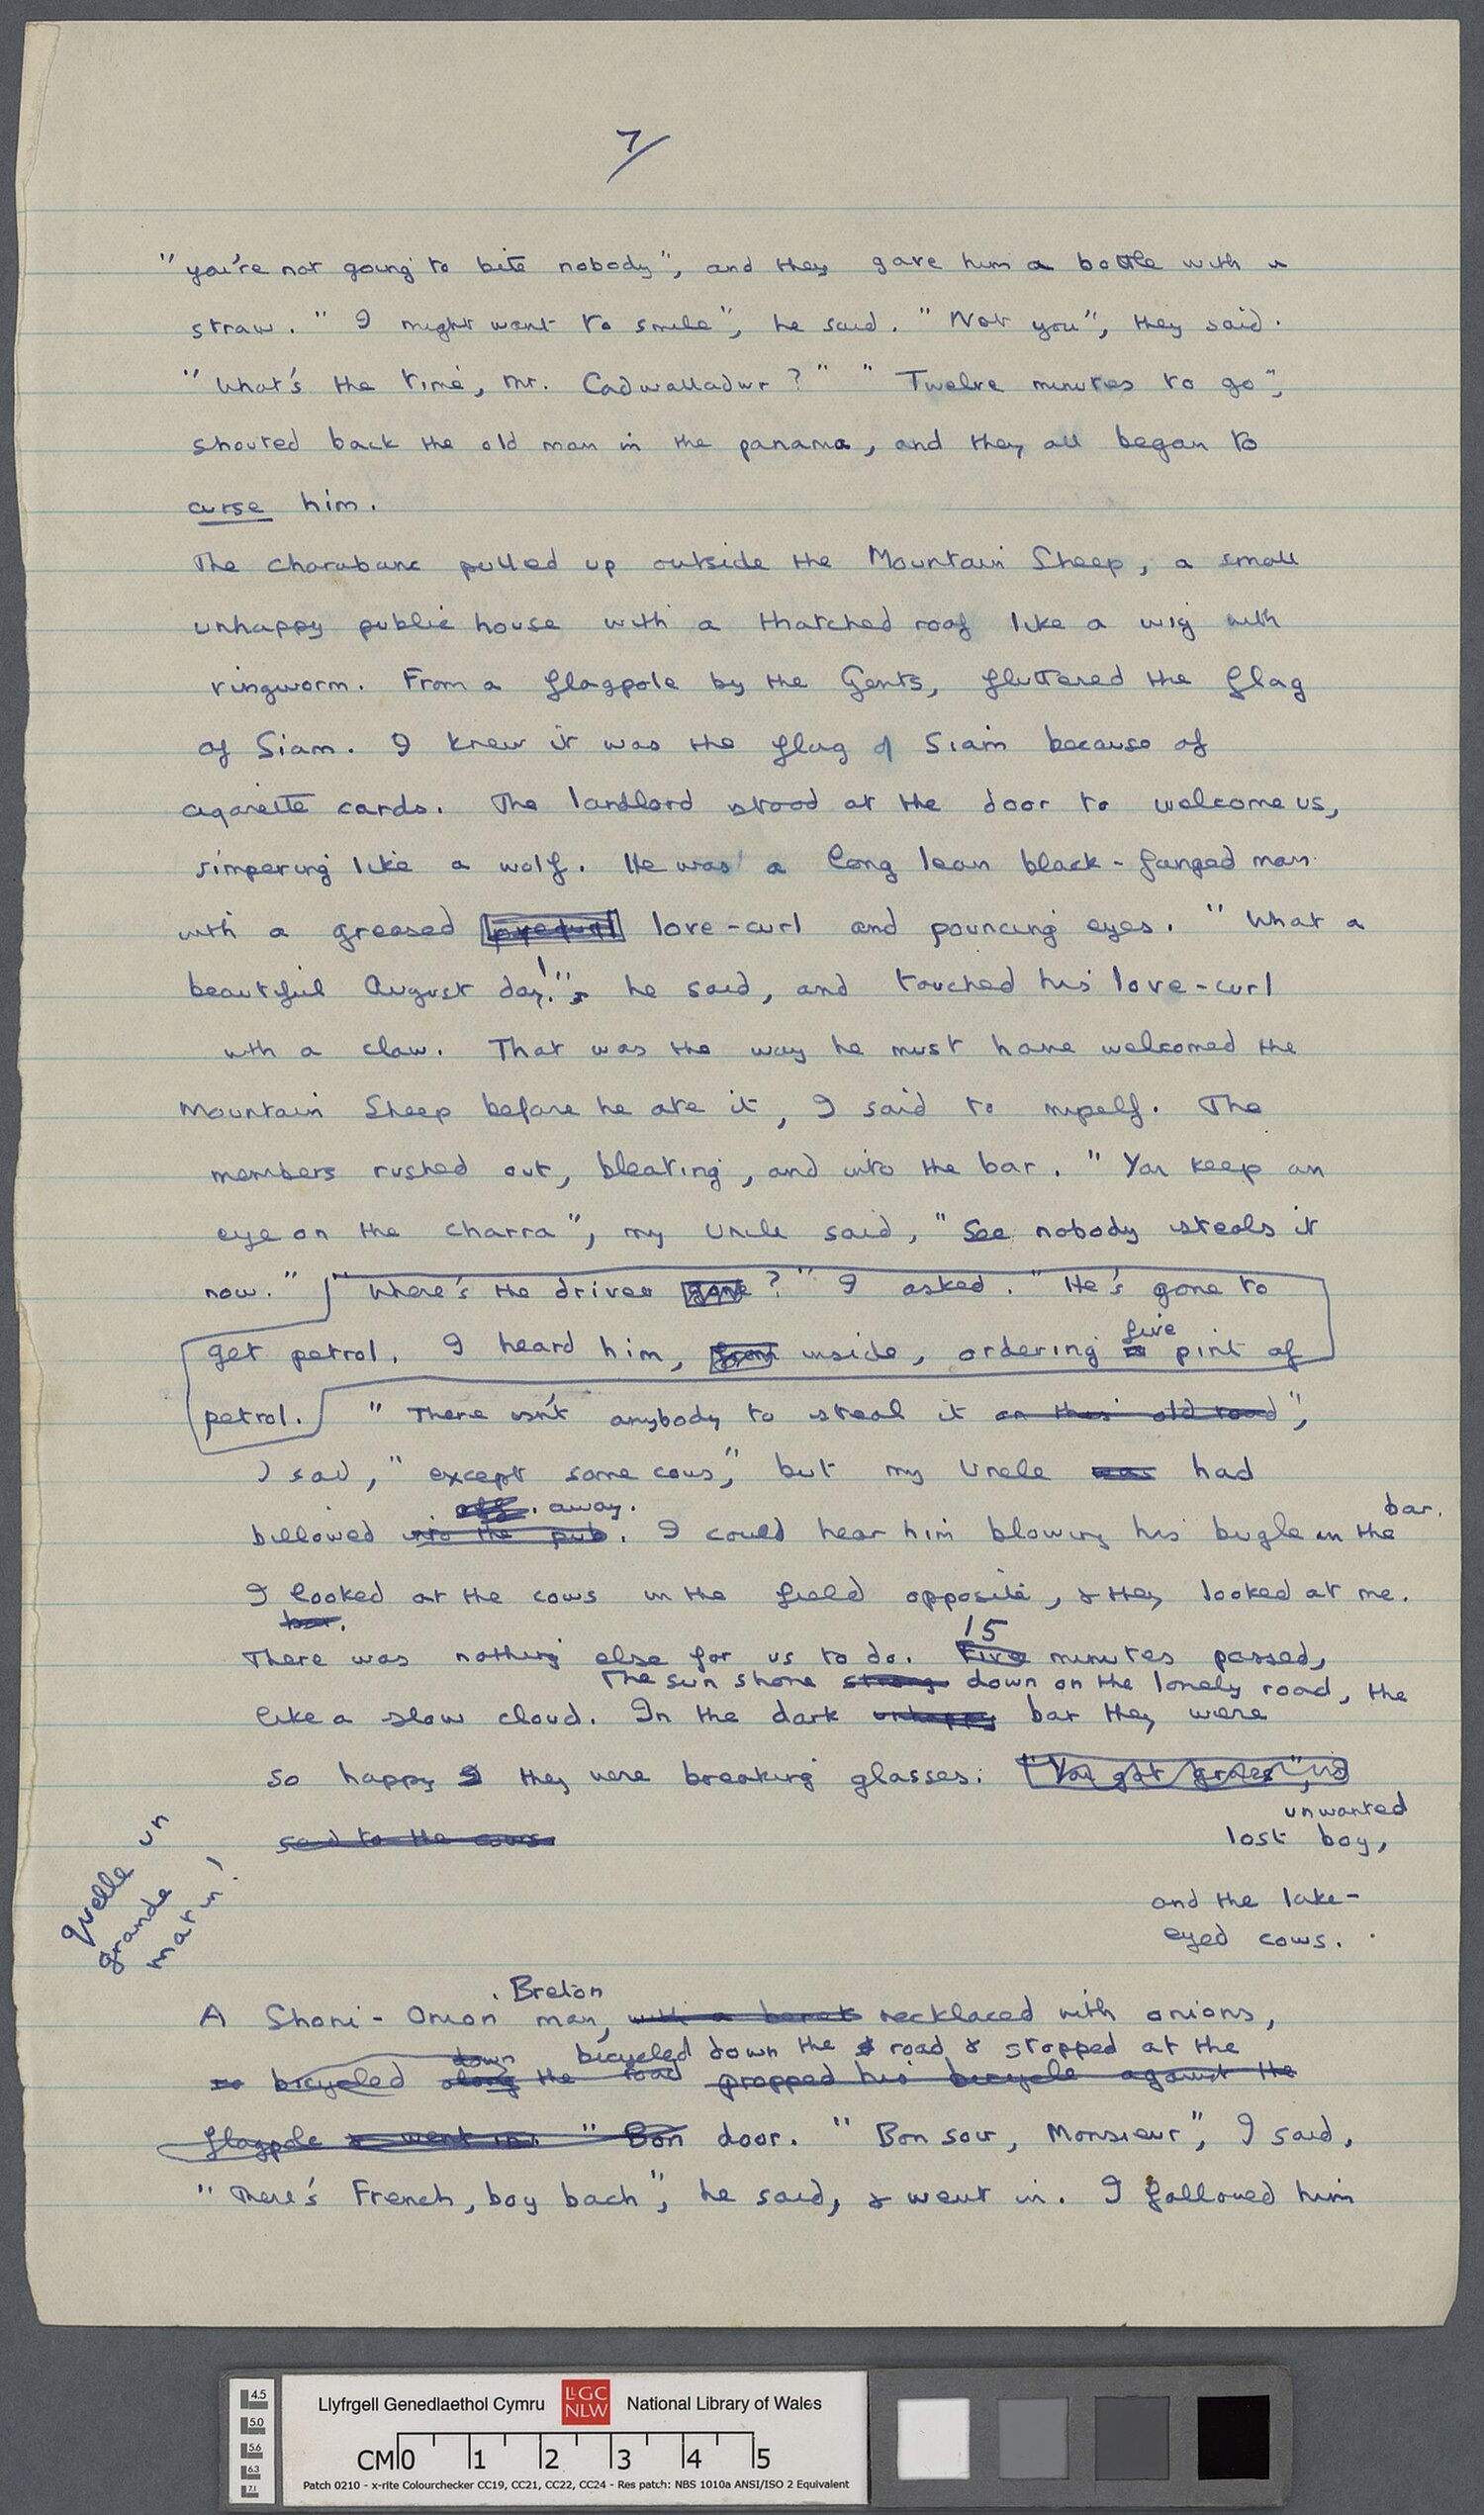 7/
"you're not going to bite nobody", and they gave him a bottle with a
straw. "I might want to smile", he said. "Not you", they said.
"What's the time, Mr. Cadwalladwr?" "Twelve minutes to go",
shouted back the old man in the panama, and they all began to
curse him.
The charabanc pulled up outside the Mountain Sheep, a small
unhappy public house with a thatched roof like a wig with
ringworm. From a flagpole by the Gents, fluttered the flag
of Siam. I knew it was the flag of Siam because of
cigarette cards. The landlord stood at the door to welcome us,
simpering like a wolf. He was a long lean black-fanged man
with a greased love-curl and pouncing eyes. "What a
beautiful August day!" he said, and touched his love-curl
with a claw. That was the way he must have welcomed the
Mountain Sheep before he ate it, I said to myself. The
members rushed out, bleating, and into the bar. "You keep an
eye on the charra", my Uncle said, "See nobody steals it
now." "Where's the driver gone?" I asked. "He's gone to
five
get petrol. I heard him, from inside, ordering a pint of
petrol. "There isn't anybody to steal it on this old road",
I said, "except some cows", but my Uncle was had
off. away.
bar.
billowed into the pub. I could hear him blowing his bugle in the
I looked at the cows in the field opposite, & they looked at me.
bar.
15
There was nothing else for us to do. Five minutes passed,
The sun shone strong down on the lonely road, the
like a slow cloud. In the dark unhappy bar they were
so happy they were breaking glasses. "You eat grass", I
said to the cows.
unwanted
lost boy,
and the lake-
eyed cows.
quelle un
grande
matin!
Breton
A Shoni-Onion man, with a beret necklaced with onions,
down bicycled down the road & stopped at the
bicycled along the road propped his bicycle against the
flagpole & went in. "Bon door. "Bon soir, Monsieur", I said,
"There's French, boy bach", he said, & went in. I followed him
4.5
5.0
5.6
6.3
7.1
Llyfrgell Genedlaethol Cymru LLGC NLW National Library of Wales
CM 0 1 2 3 4 5
Patch 0210 - x-rite Colourchecker CC19, CC21, CC22, CC24 - Res patch: NBS 1010a ANSI/ISO 2 Equivalent